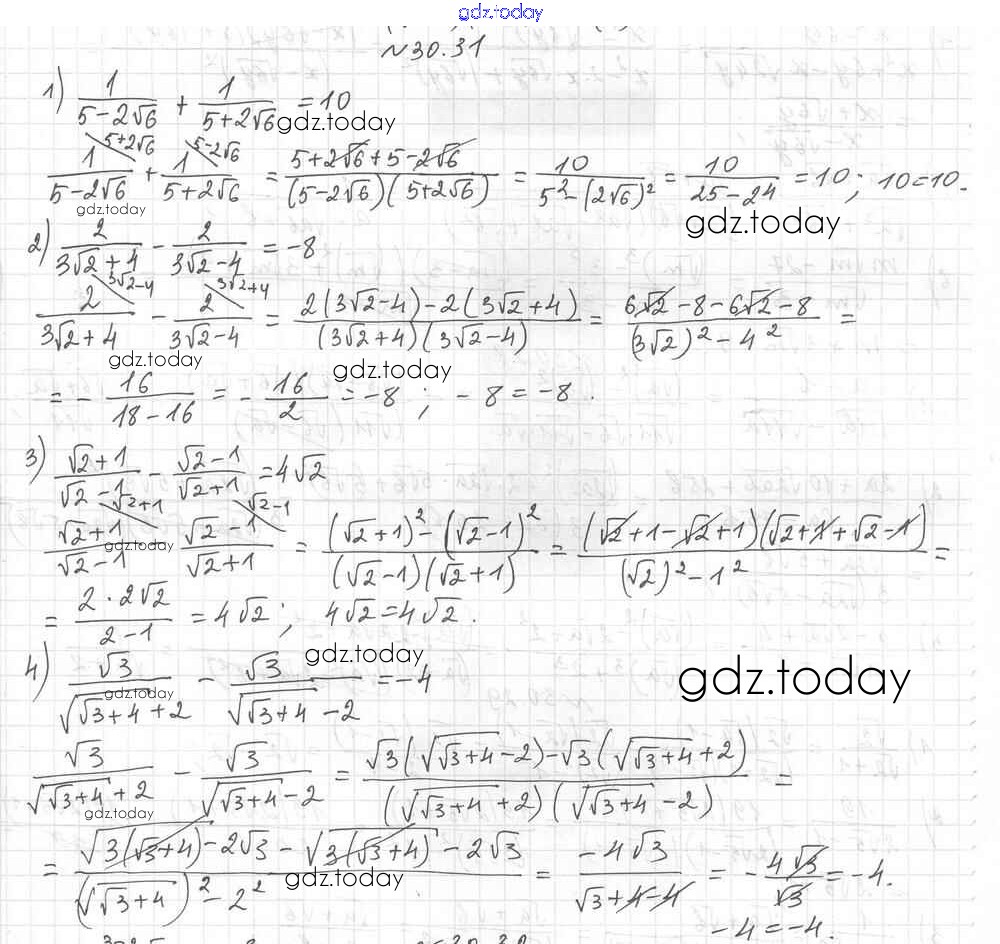 gdz.today
№30.31
1) 1/(5-2√6) + 1/(5+2√6) = 10
gdz.today
1/(5-2√6) ^(5+2√6) + 1/(5+2√6) ^(5-2√6) = (5+2√6+5-2√6)/((5-2√6)(5+2√6)) = 10/(5²-(2√6)²) = 10/(25-24) = 10; 10=10.
gdz.today
gdz.today
2) 2/(3√2+4) - 2/(3√2-4) = -8
2/(3√2+4) ^(3√2-4) - 2/(3√2-4) ^(3√2+4) = (2(3√2-4)-2(3√2+4))/((3√2+4)(3√2-4)) = (6√2-8-6√2-8)/((3√2)²-4²) =
gdz.today
gdz.today
= - 16/(18-16) = - 16/2 = -8; -8=-8.
3) (√2+1)/(√2-1) - (√2-1)/(√2+1) = 4√2
(√2+1)/(√2-1) ^(√2+1) - (√2-1)/(√2+1) ^(√2-1) = ((√2+1)²-(√2-1)²)/((√2-1)(√2+1)) = ((√2+1-√2+1)(√2+1+√2-1))/((√2)²-1²) =
gdz.today
= (2·2√2)/(2-1) = 4√2; 4√2=4√2.
gdz.today
4) √3/(√(√3+4)+2) - √3/(√(√3+4)-2) = -4
gdz.today
gdz.today
√3/(√(√3+4)+2) - √3/(√(√3+4)-2) = (√3(√(√3+4)-2)-√3(√(√3+4)+2))/((√(√3+4)+2)(√(√3+4)-2)) =
gdz.today
= (√(3(√3+4))-2√3-√(3(√3+4))-2√3)/((√(√3+4))²-2²) = (-4√3)/(√3+4-4) = - 4√3/√3 = -4.
gdz.today
-4=-4.